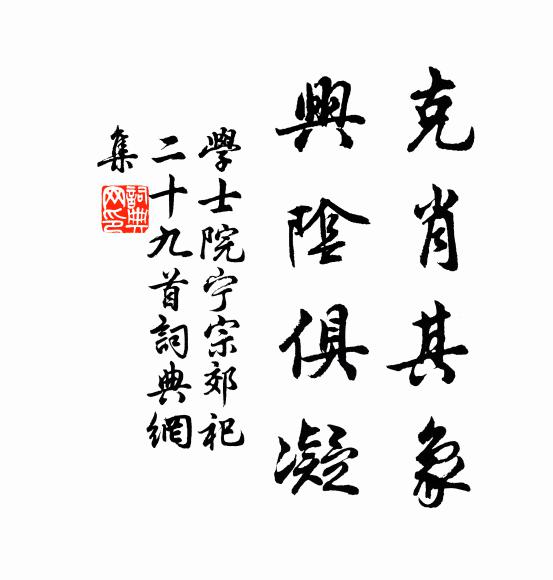 克肖其象
興陰俱凝
學士院宁宗郊祀
二十九首詞典網
集
詞典网印